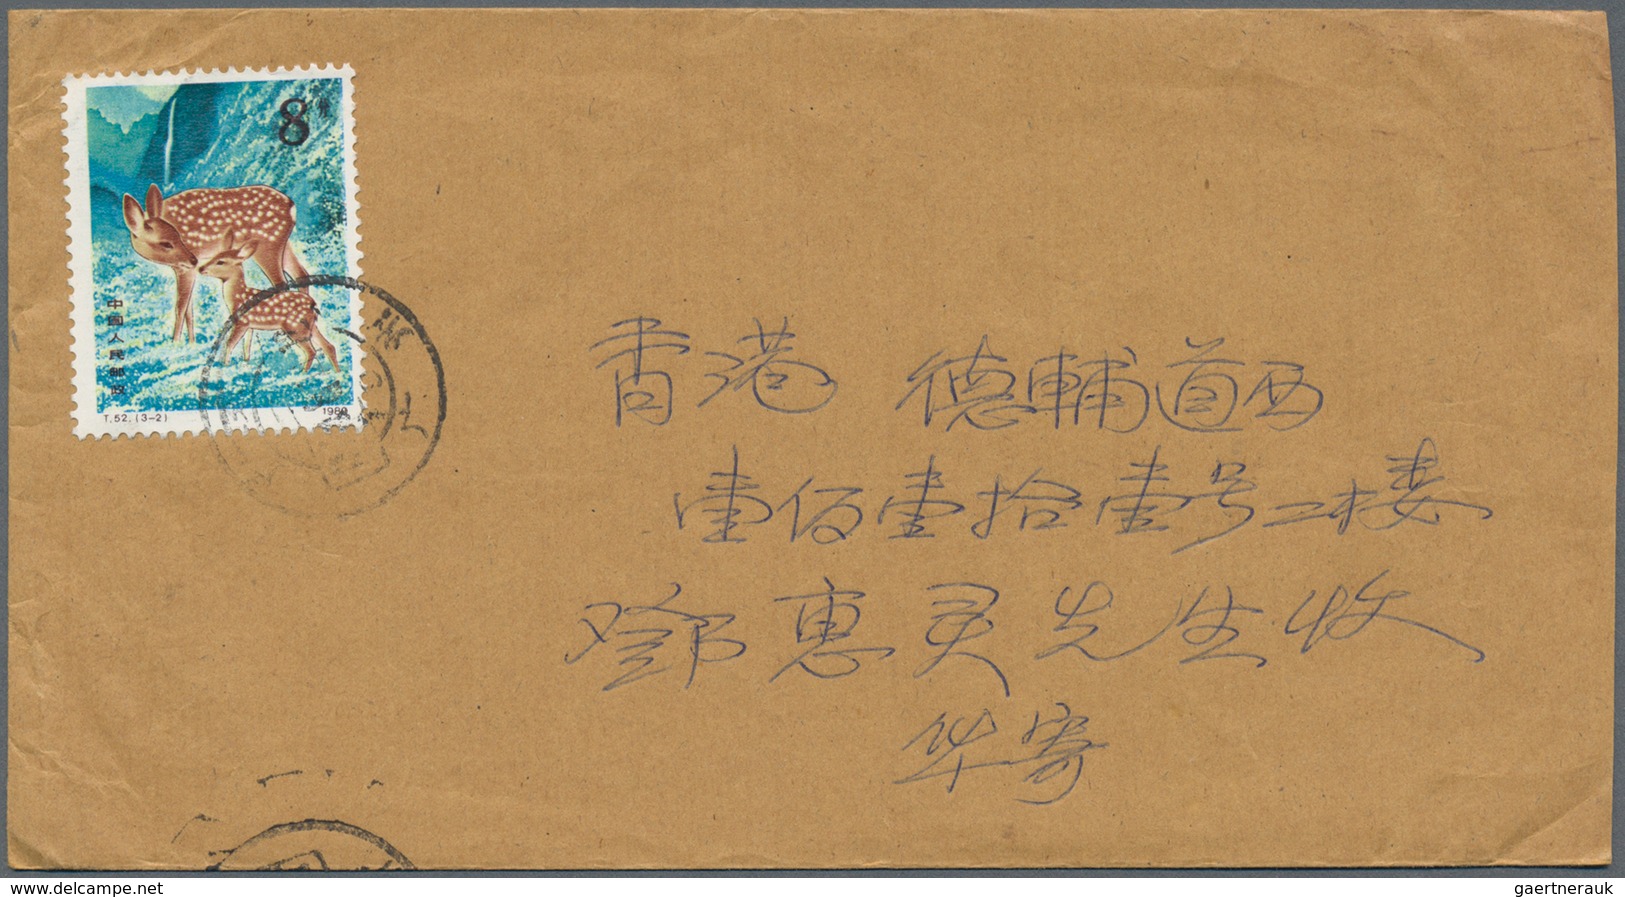 8分
中国人民邮政
T.52.(3-2) 1980
香港 德輔道西
壹佰壹拾壹号二楼
鄧惠灵先生收
华寄
www.delcampe.net
gaertnerauk